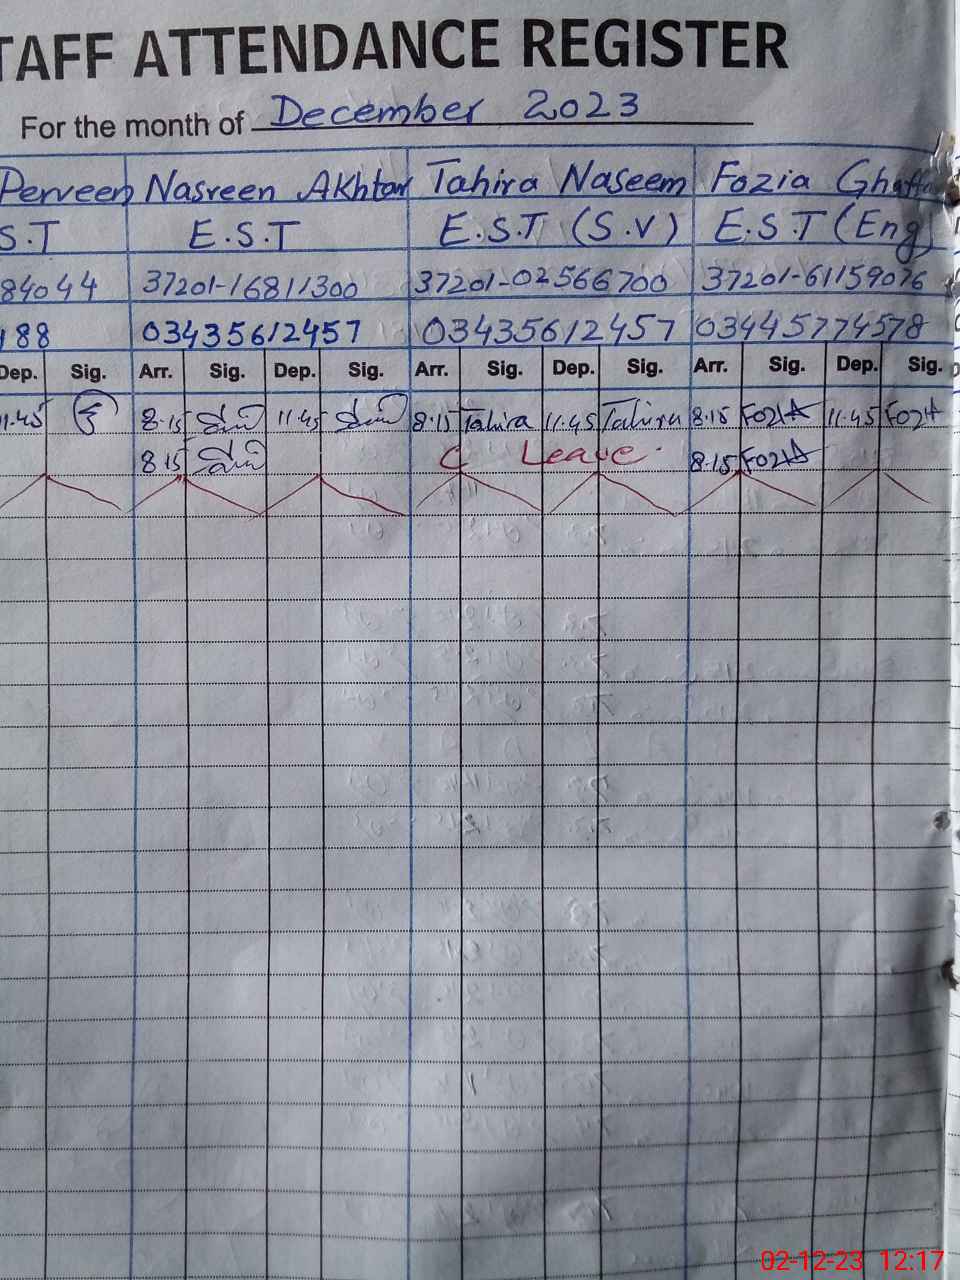 TAFF ATTENDANCE REGISTER
For the month of December 2023
Perveen Nasreen Akhtar Tahira Naseem Fozia Ghaffa
S.T E.S.T E.S.T (S.V) E.S.T (Eng)
84044 37201-16811300 37201-02566700 37201-61159076
188 03435612457 03435612457 03445774578
Dep. Sig. Arr. Sig. Dep. Sig. Arr. Sig. Dep. Sig. Arr. Sig. Dep. Sig.
11.45 8.15 11.45 8.15 Tahira 11.45 Tahira 8.15 FOZIA 11.45 FOZIA
8.15 C Leave. 8.15 FOZIA
02-12-23 12:17